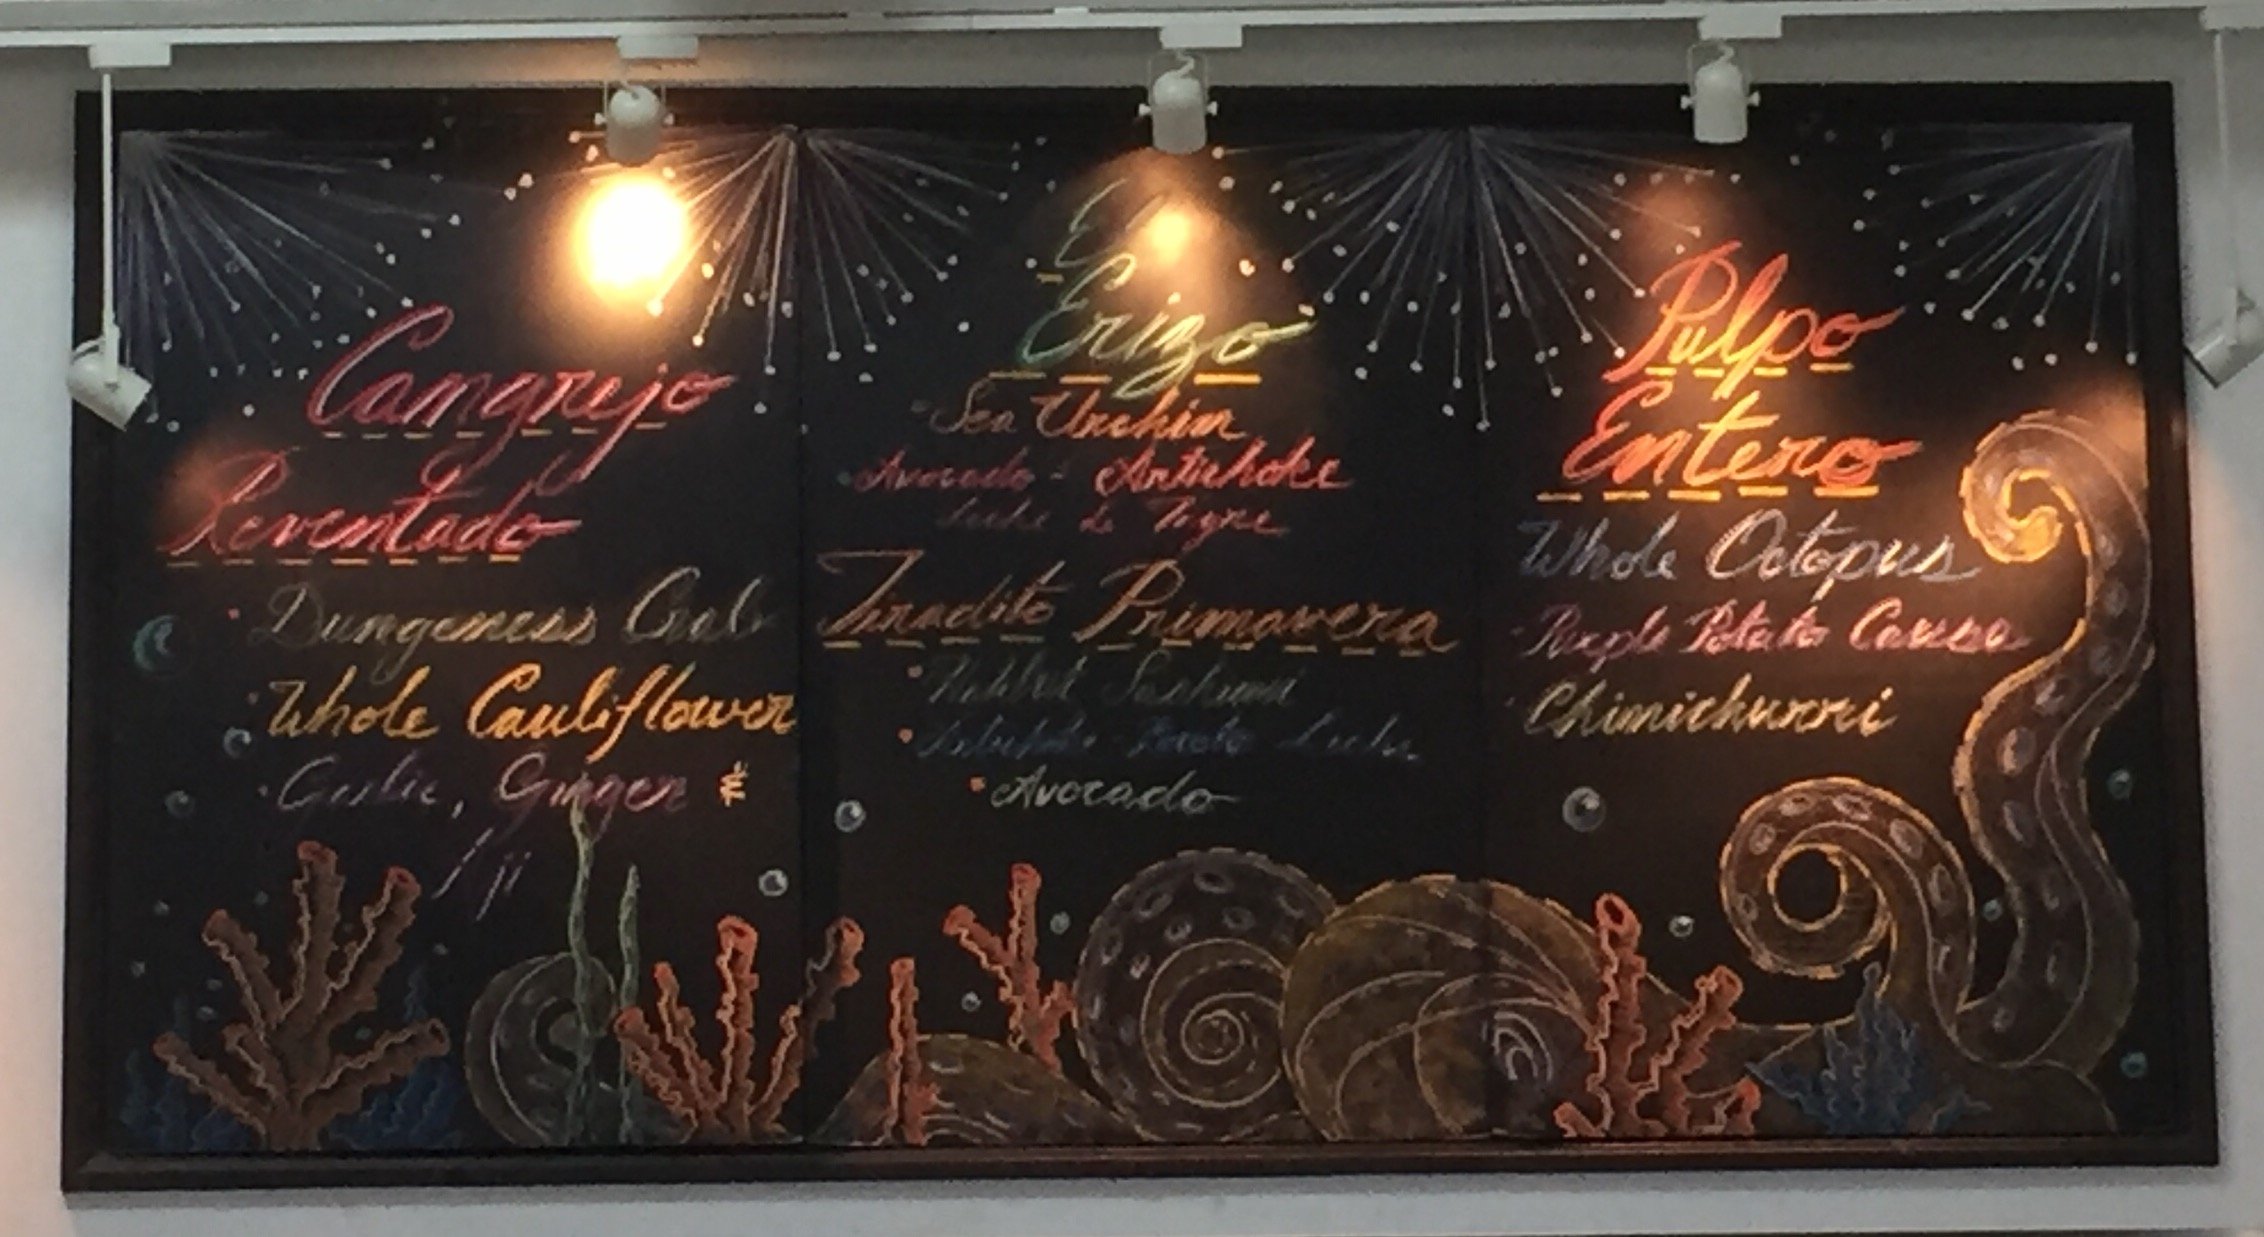 Cangrejo
Reventado
Dungeness Crab
Whole Cauliflower
Garlic, Ginger &
Aji
El
Erizo
Sea Urchin
Avocado - Artichoke
Leche de Tigre
Tiradito Primavera
Halibut Sashimi
Artichoke - Leche
Avocado
Pulpo
Entero
Whole Octopus
Purple Potato Causa
Chimichurri